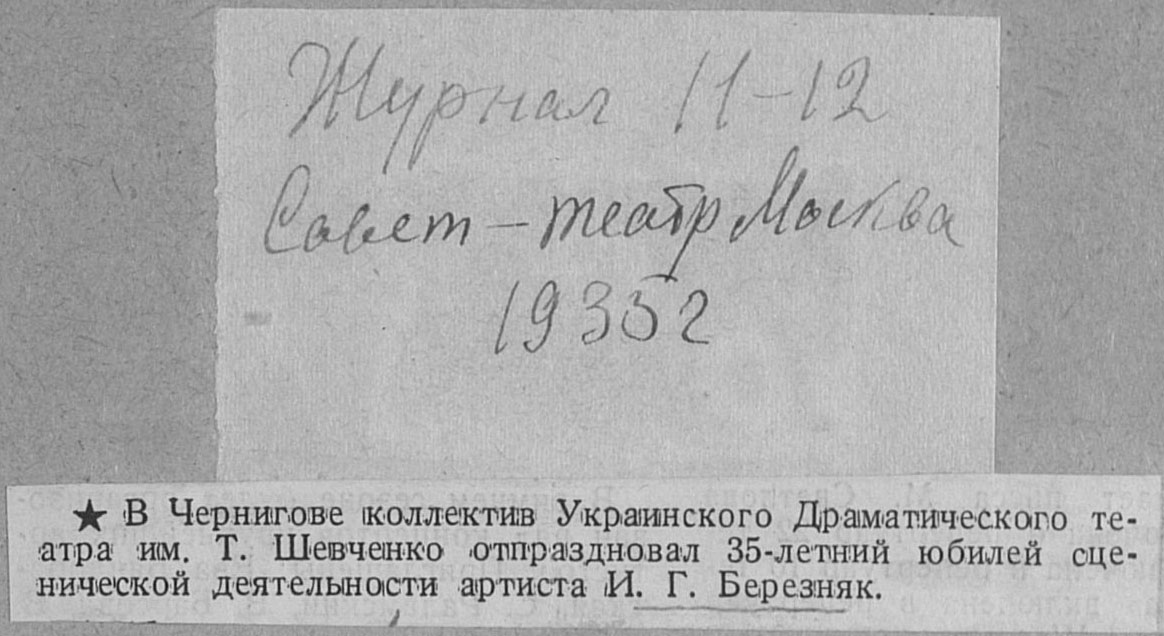 Журнал 11-12
Совет - театр Москва
1935г
★ В Чернигове коллектив Украинского Драматического те-
атра им. Т. Шевченко отпраздновал 35-летний юбилей сце-
нической деятельности артиста И. Г. Березняк.